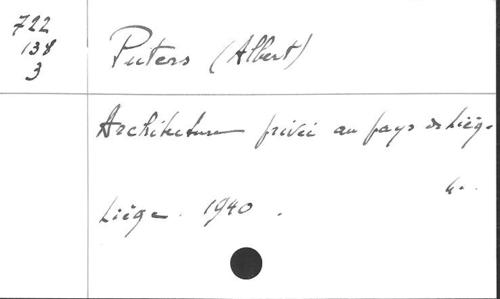 722
138
3
Puters (Albert)
Architecture privée au pays de Liège.
4°.
Liège. 1940.